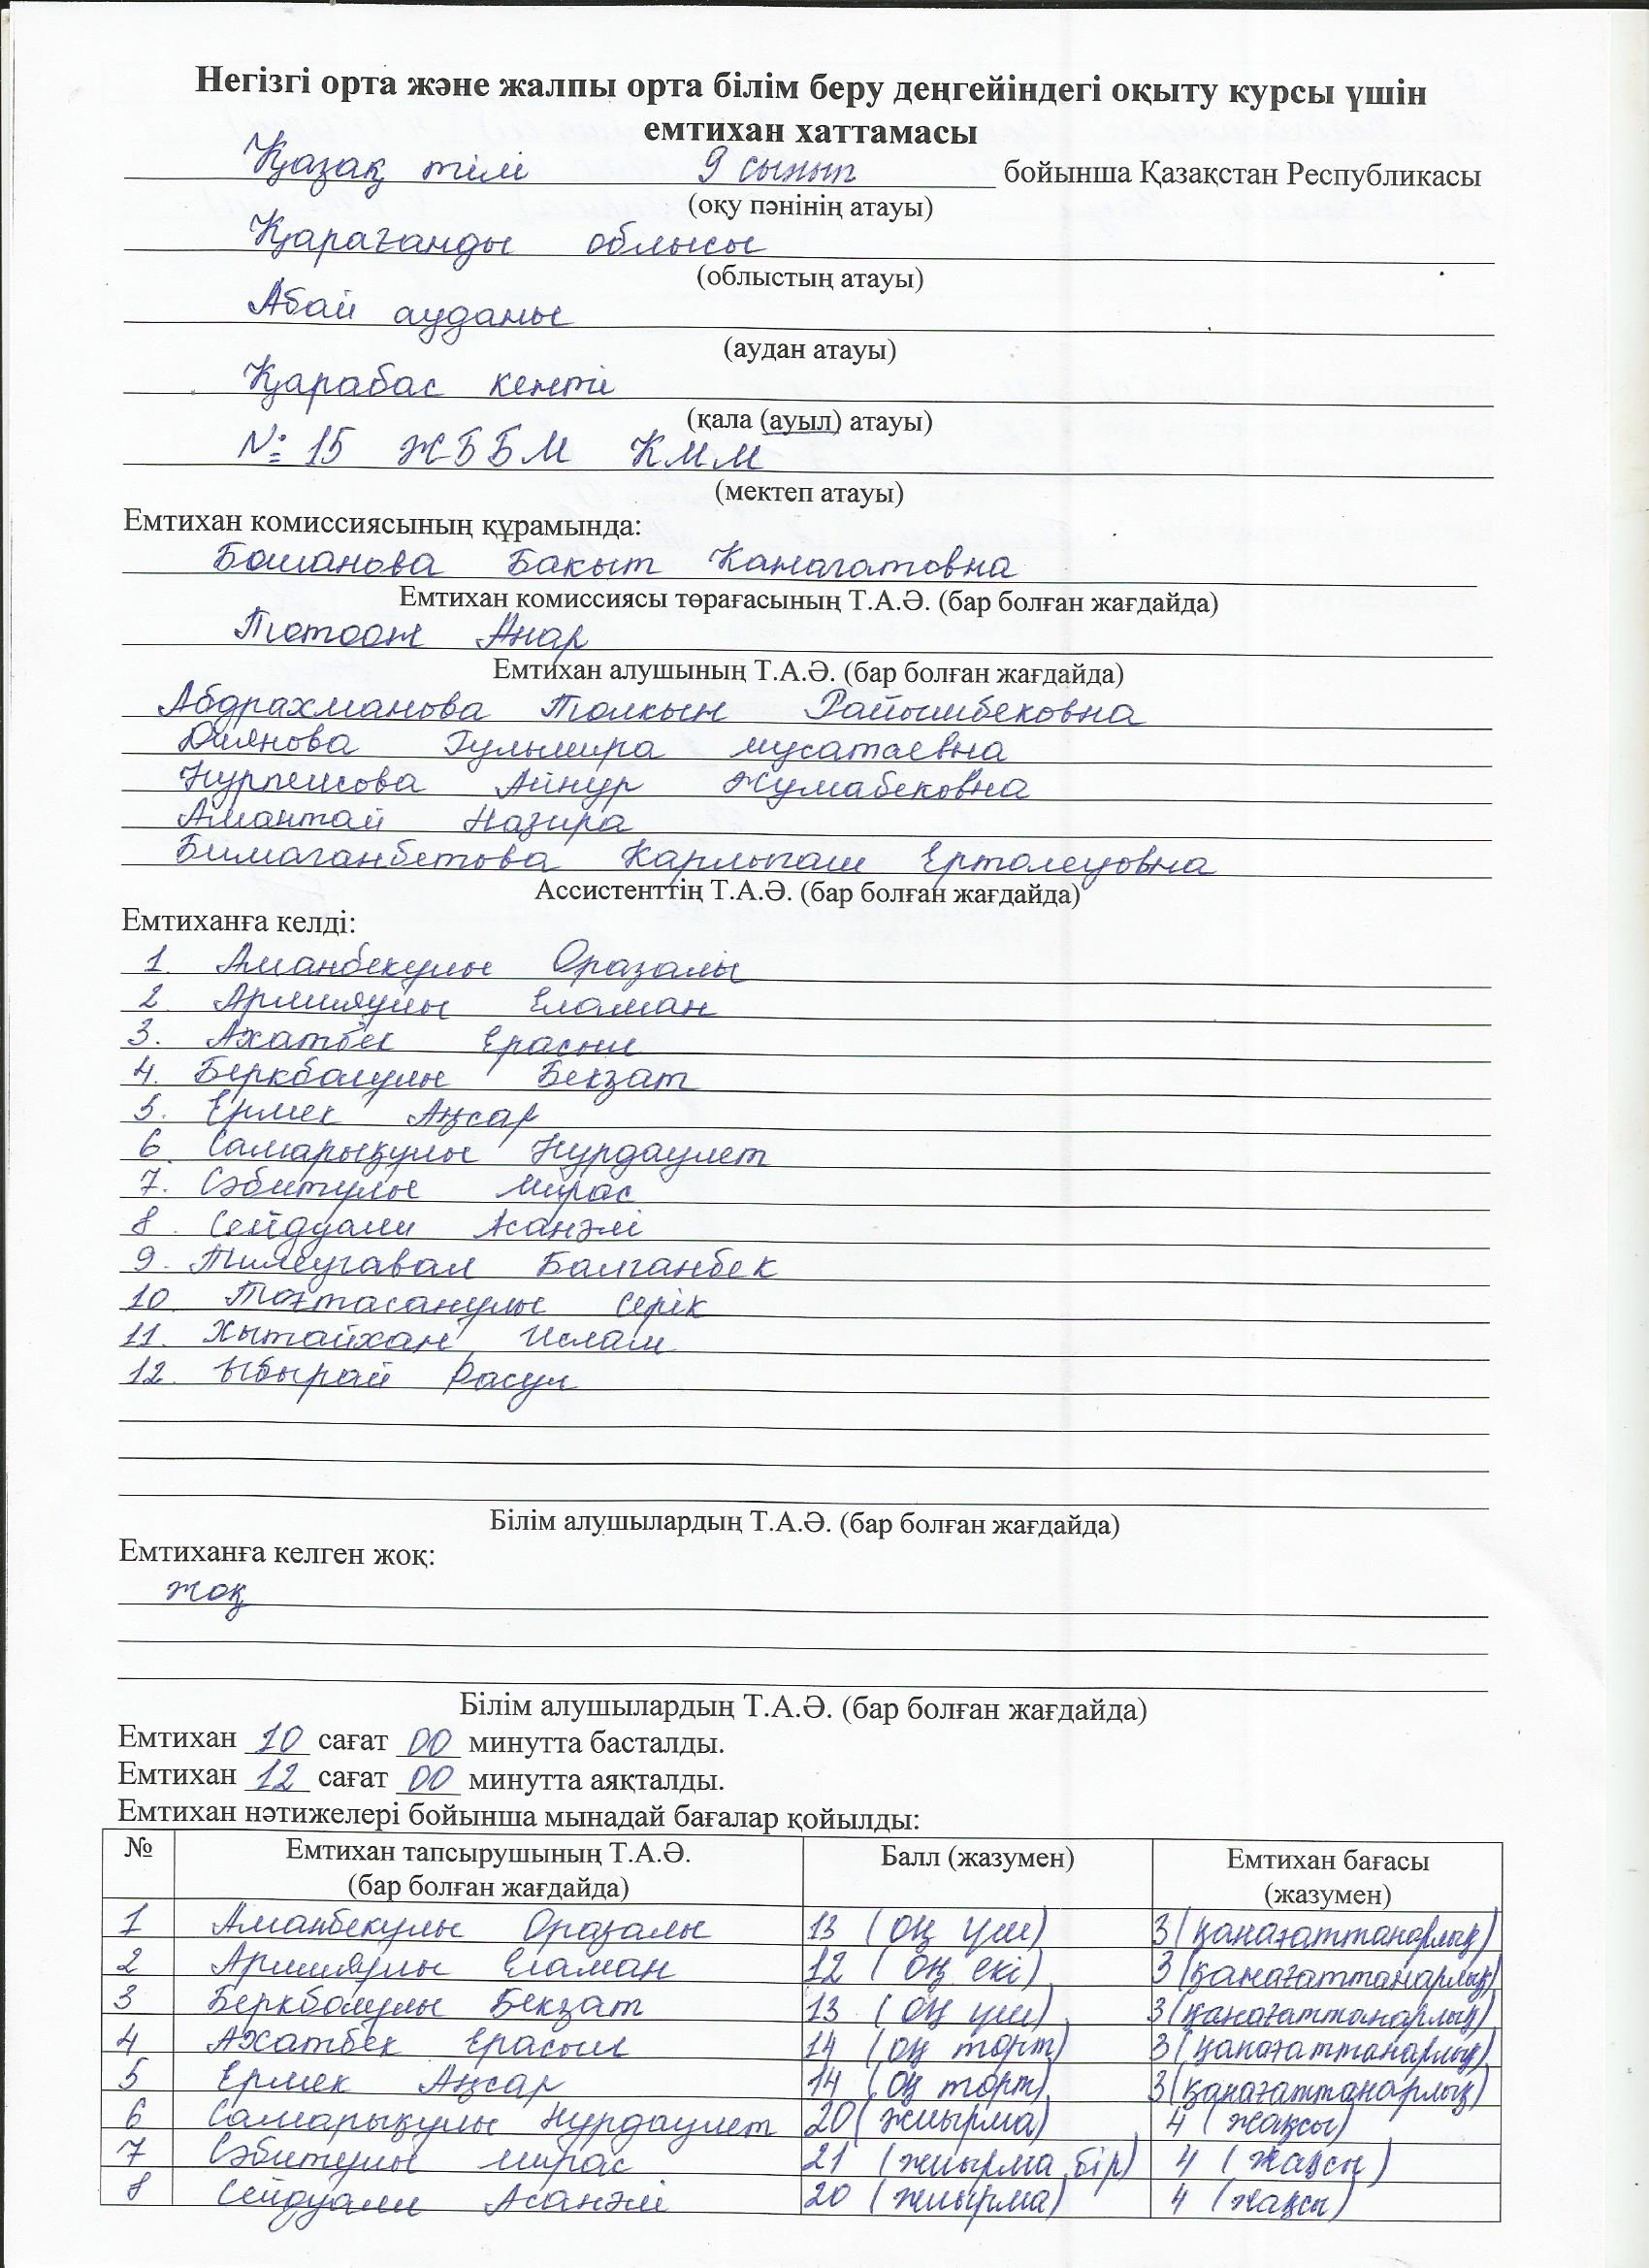 Негізгі орта және жалпы орта білім беру деңгейіндегі оқыту курсы үшін
емтихан хаттамасы
Қазақ тілі 9 сынып бойынша Қазақстан Республикасы
(оқу пәнінің атауы)
Қарағанды облысы
(облыстың атауы)
Абай ауданы
(аудан атауы)
Қарабас кенті
(қала (ауыл) атауы)
№ 15 ЖББМ КММ
(мектеп атауы)
Емтихан комиссиясының құрамында:
Бошанова Бакыт Канагатовна
Емтихан комиссиясы төрағасының Т.А.Ә. (бар болған жағдайда)
Анар
Емтихан алушының Т.А.Ә. (бар болған жағдайда)
Абдрахманова Толкын Райымбековна
Диянова Гульмира мусатаевна
Нурпеисова Айнур Жумабековна
Амантай Назира
Бимаганбетова Карлыгаш Ертолеуовна
Ассистенттің Т.А.Ә. (бар болған жағдайда)
Емтиханға келді:
1. Аманбекулы Оразалы
2. Армияулы Еламан
3. Ахатбек Ерасыл
4. Беркболулы Бекзат
5. Ермек Аңсар
6. Самарықулы Нурдаулет
7. Сәбитулы Мирас
8. Сейдуали Асанәлі
9. Тилеугавал Балганбек
10. Тоқтасанулы Серік
11. Хытайхан Ислам
12. Ыбырай Расул
Білім алушылардың Т.А.Ә. (бар болған жағдайда)
Емтиханға келген жоқ:
жоқ
Білім алушылардың Т.А.Ә. (бар болған жағдайда)
Емтихан 10 сағат 00 минутта басталды.
Емтихан 12 сағат 00 минутта аяқталды.
Емтихан нәтижелері бойынша мынадай бағалар қойылды:
№ Емтихан тапсырушының Т.А.Ә. (бар болған жағдайда) Балл (жазумен) Емтихан бағасы (жазумен)
1 Аманбекулы Оразалы 13 (оң үш) 3 (қанағаттанарлық)
2 Армияулы Еламан 12 (оң екі) 3 (қанағаттанарлық)
3 Беркболулы Бекзат 13 (оң үш) 3 (қанағаттанарлық)
4 Ахатбек Ерасыл 14 (оң торт) 3 (қанағаттанарлық)
5 Ермек Аңсар 14 (оң торт) 3 (қанағаттанарлық)
6 Самарықулы Нурдаулет 20 (жиырма) 4 (жақсы)
7 Сәбитулы мирас 21 (жиырма бір) 4 (жақсы)
8 Сейдуали Асанәлі 20 (жиырма) 4 (жақсы)